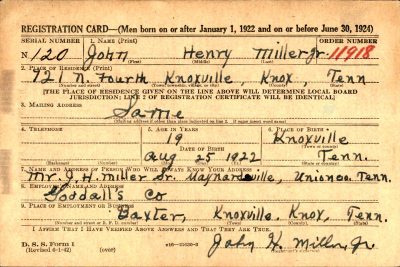 REGISTRATION CARD—(Men born on or after January 1, 1922 and on or before June 30, 1924)
SERIAL NUMBER 1. NAME (Print) ORDER NUMBER
N 120 John Henry Miller Jr. 11918
(First) (Middle) (Last)
2. PLACE OF RESIDENCE (Print)
921 N. Fourth Knoxville, Knox, Tenn
(Number and street) (Town, township, village, or city) (County) (State)
[THE PLACE OF RESIDENCE GIVEN ON THE LINE ABOVE WILL DETERMINE LOCAL BOARD
JURISDICTION; LINE 2 OF REGISTRATION CERTIFICATE WILL BE IDENTICAL]
3. MAILING ADDRESS
Same
(Mailing address if other than place indicated on line 2. If same insert word same)
4. TELEPHONE 5. AGE IN YEARS 6. PLACE OF BIRTH
19 Knoxville
DATE OF BIRTH (Town or county)
Aug 25 1922 Tenn.
(Exchange) (Number) (Mo.) (Day) (Yr.) (State or country)
7. NAME AND ADDRESS OF PERSON WHO WILL ALWAYS KNOW YOUR ADDRESS
Mr. J. H. Miller Sr. Maynardville, Union Co. Tenn.
8. EMPLOYER'S NAME AND ADDRESS
Goddall's Co
9. PLACE OF EMPLOYMENT OR BUSINESS
Baxter, Knoxville, Knox, Tenn.
(Number and street or R. F. D. number) (Town) (County) (State)
I AFFIRM THAT I HAVE VERIFIED ABOVE ANSWERS AND THAT THEY ARE TRUE.
D. S. S. Form 1
(Revised 6-1-42) (over) John H. Miller, Jr